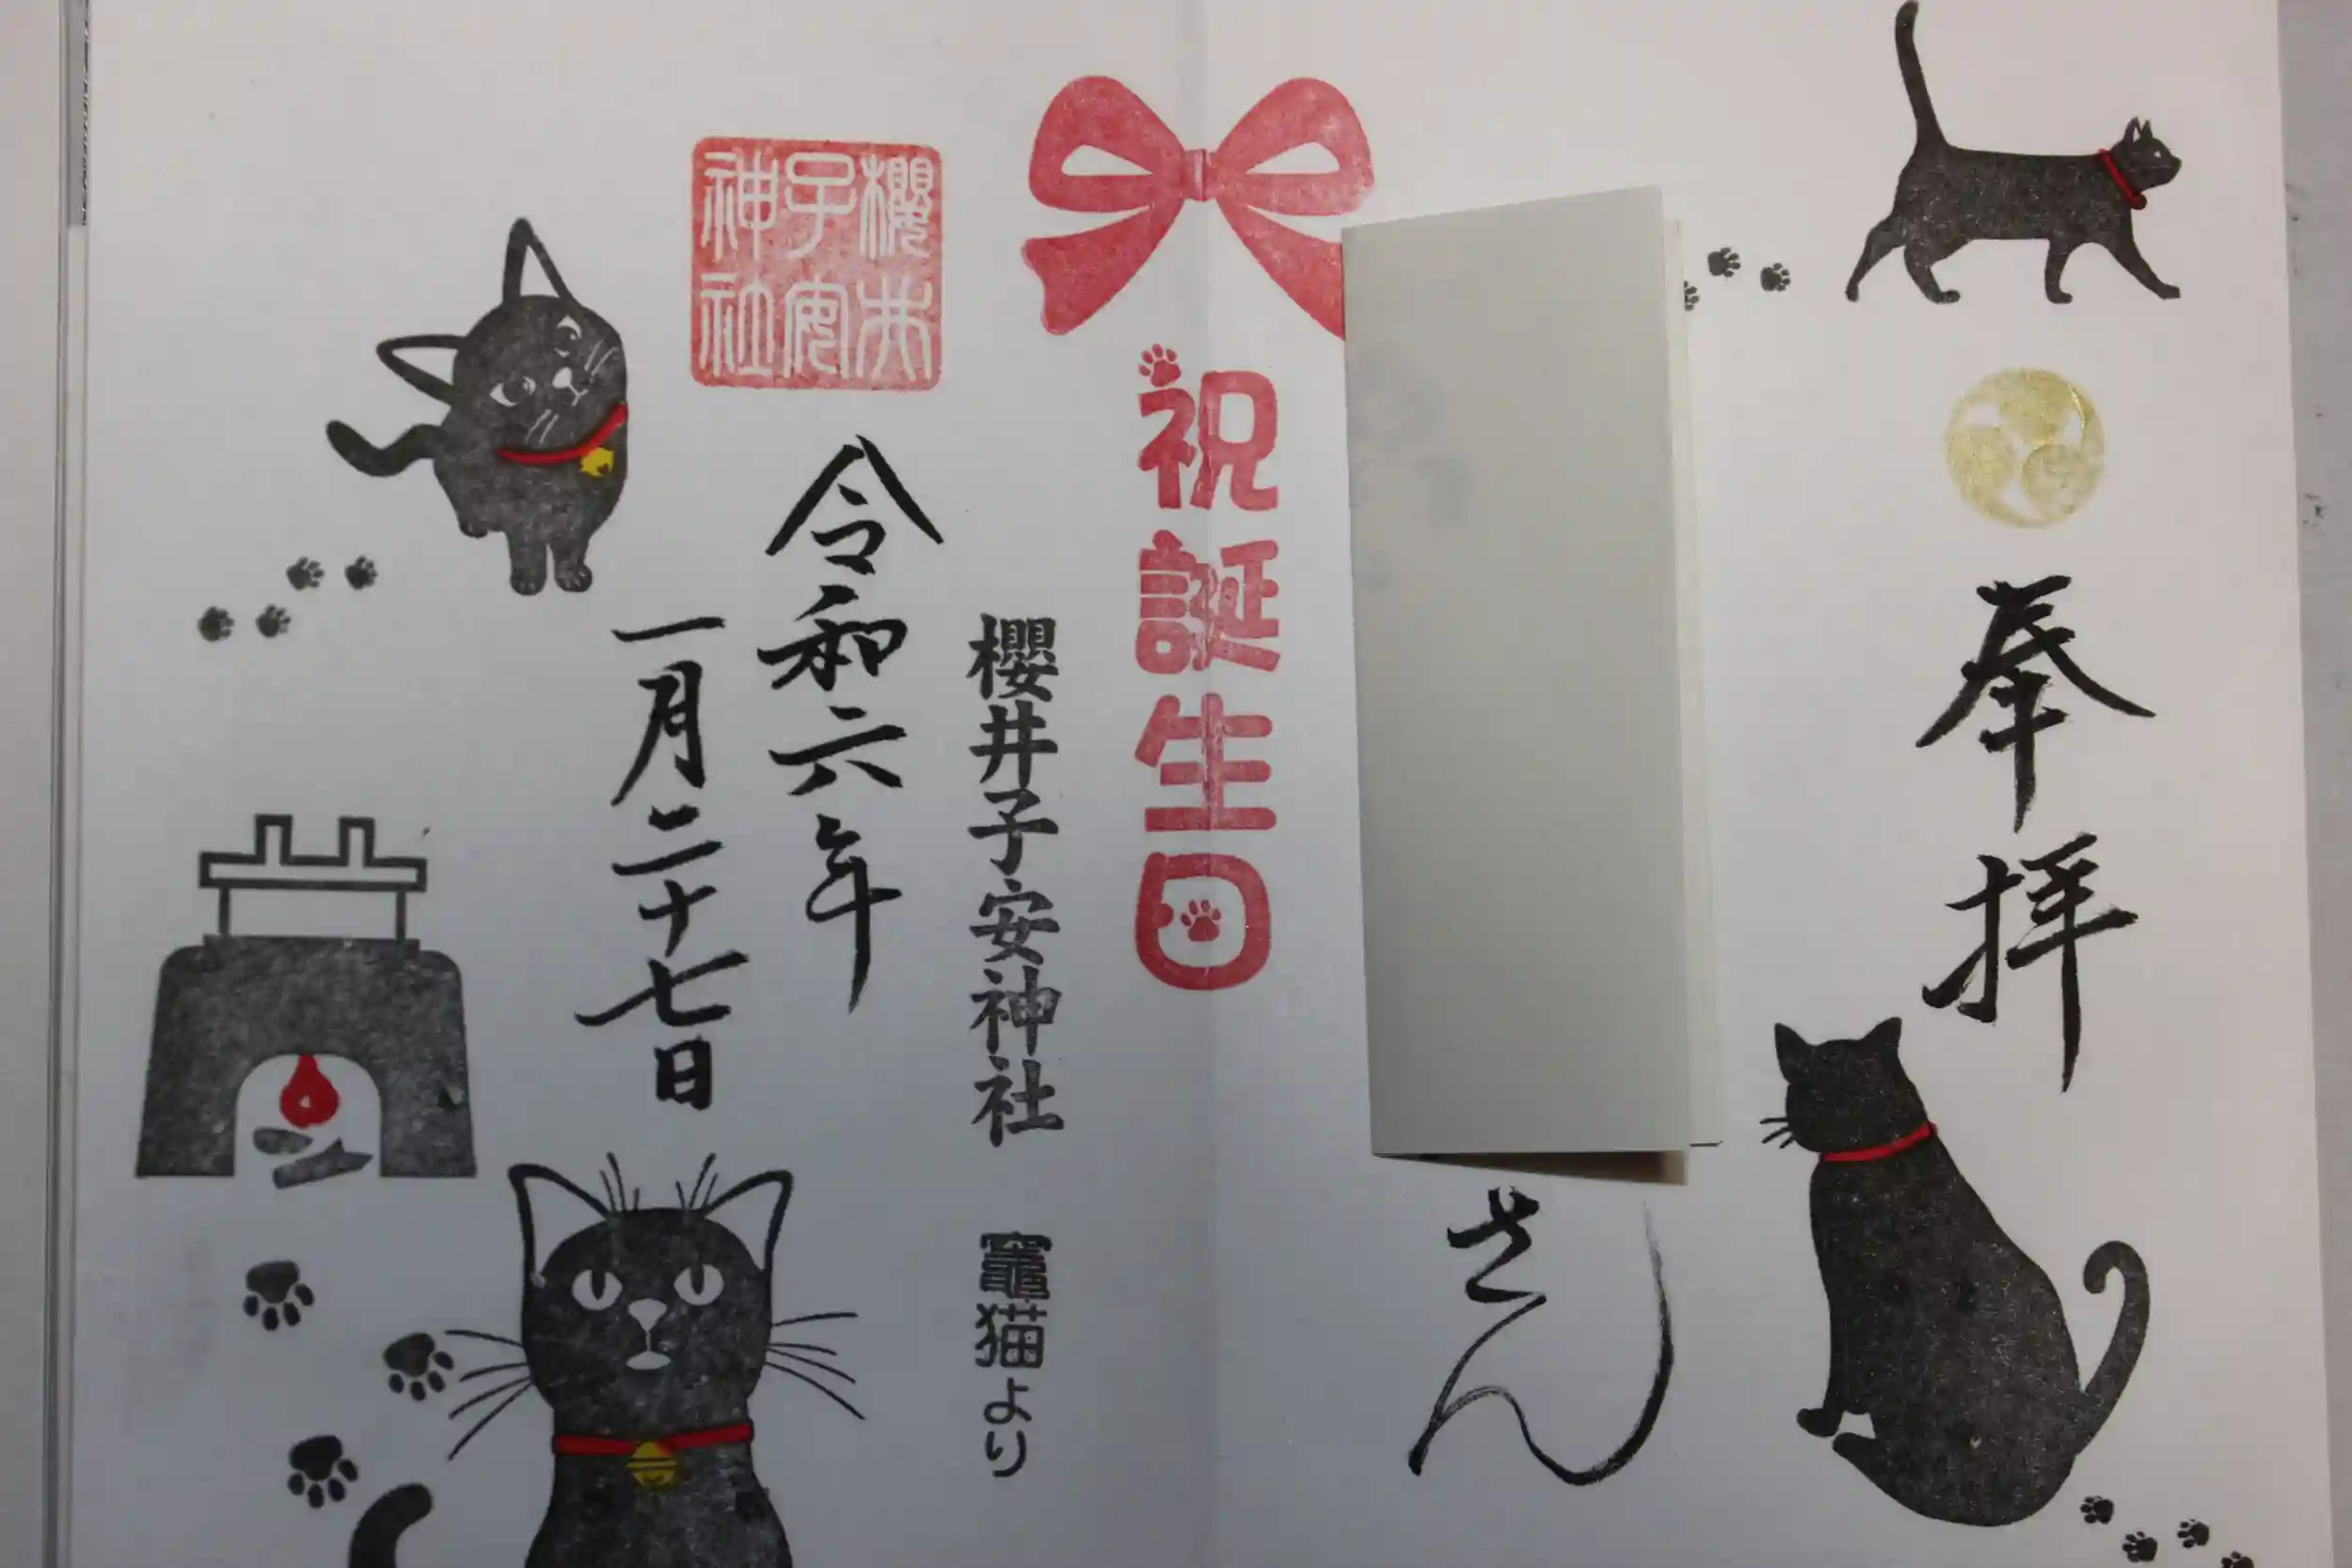 奉拝
さん
祝誕生日
櫻井子安神社 竈猫より
櫻井
子安
神社
令和六年
一月二十七日